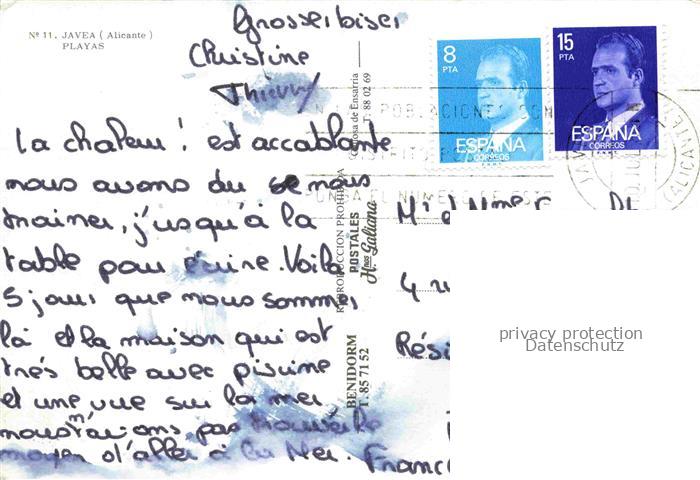 Nº 11. JAVEA (Alicante)
PLAYAS
Grosses bises
Christine
Thierry
La chaleur ! est accablante
nous avons du se nous
trainer, j'usqu'à la
table pour écrire. Voila
5 jours que nous sommes
là et la maison qui est
très belle avec piscine
et une vue sur la mer
nous n'avions pas trouvé le
moyen d'aller à la Mer.
REPRODUCCION PROHIBIDA
POSTALES
Hnos Galiana
BENIDORM
T. 85 71 52
T. 88 02 69
8
PTA
ESPAÑA
CORREOS
15
PTA
ESPAÑA
CORREOS
POBLACIONES CON
PONGA EL NUMERO DE ESTE
(ALICANTE)
Mr et Mme
4
Rési
Franc
privacy protection
Datenschutz